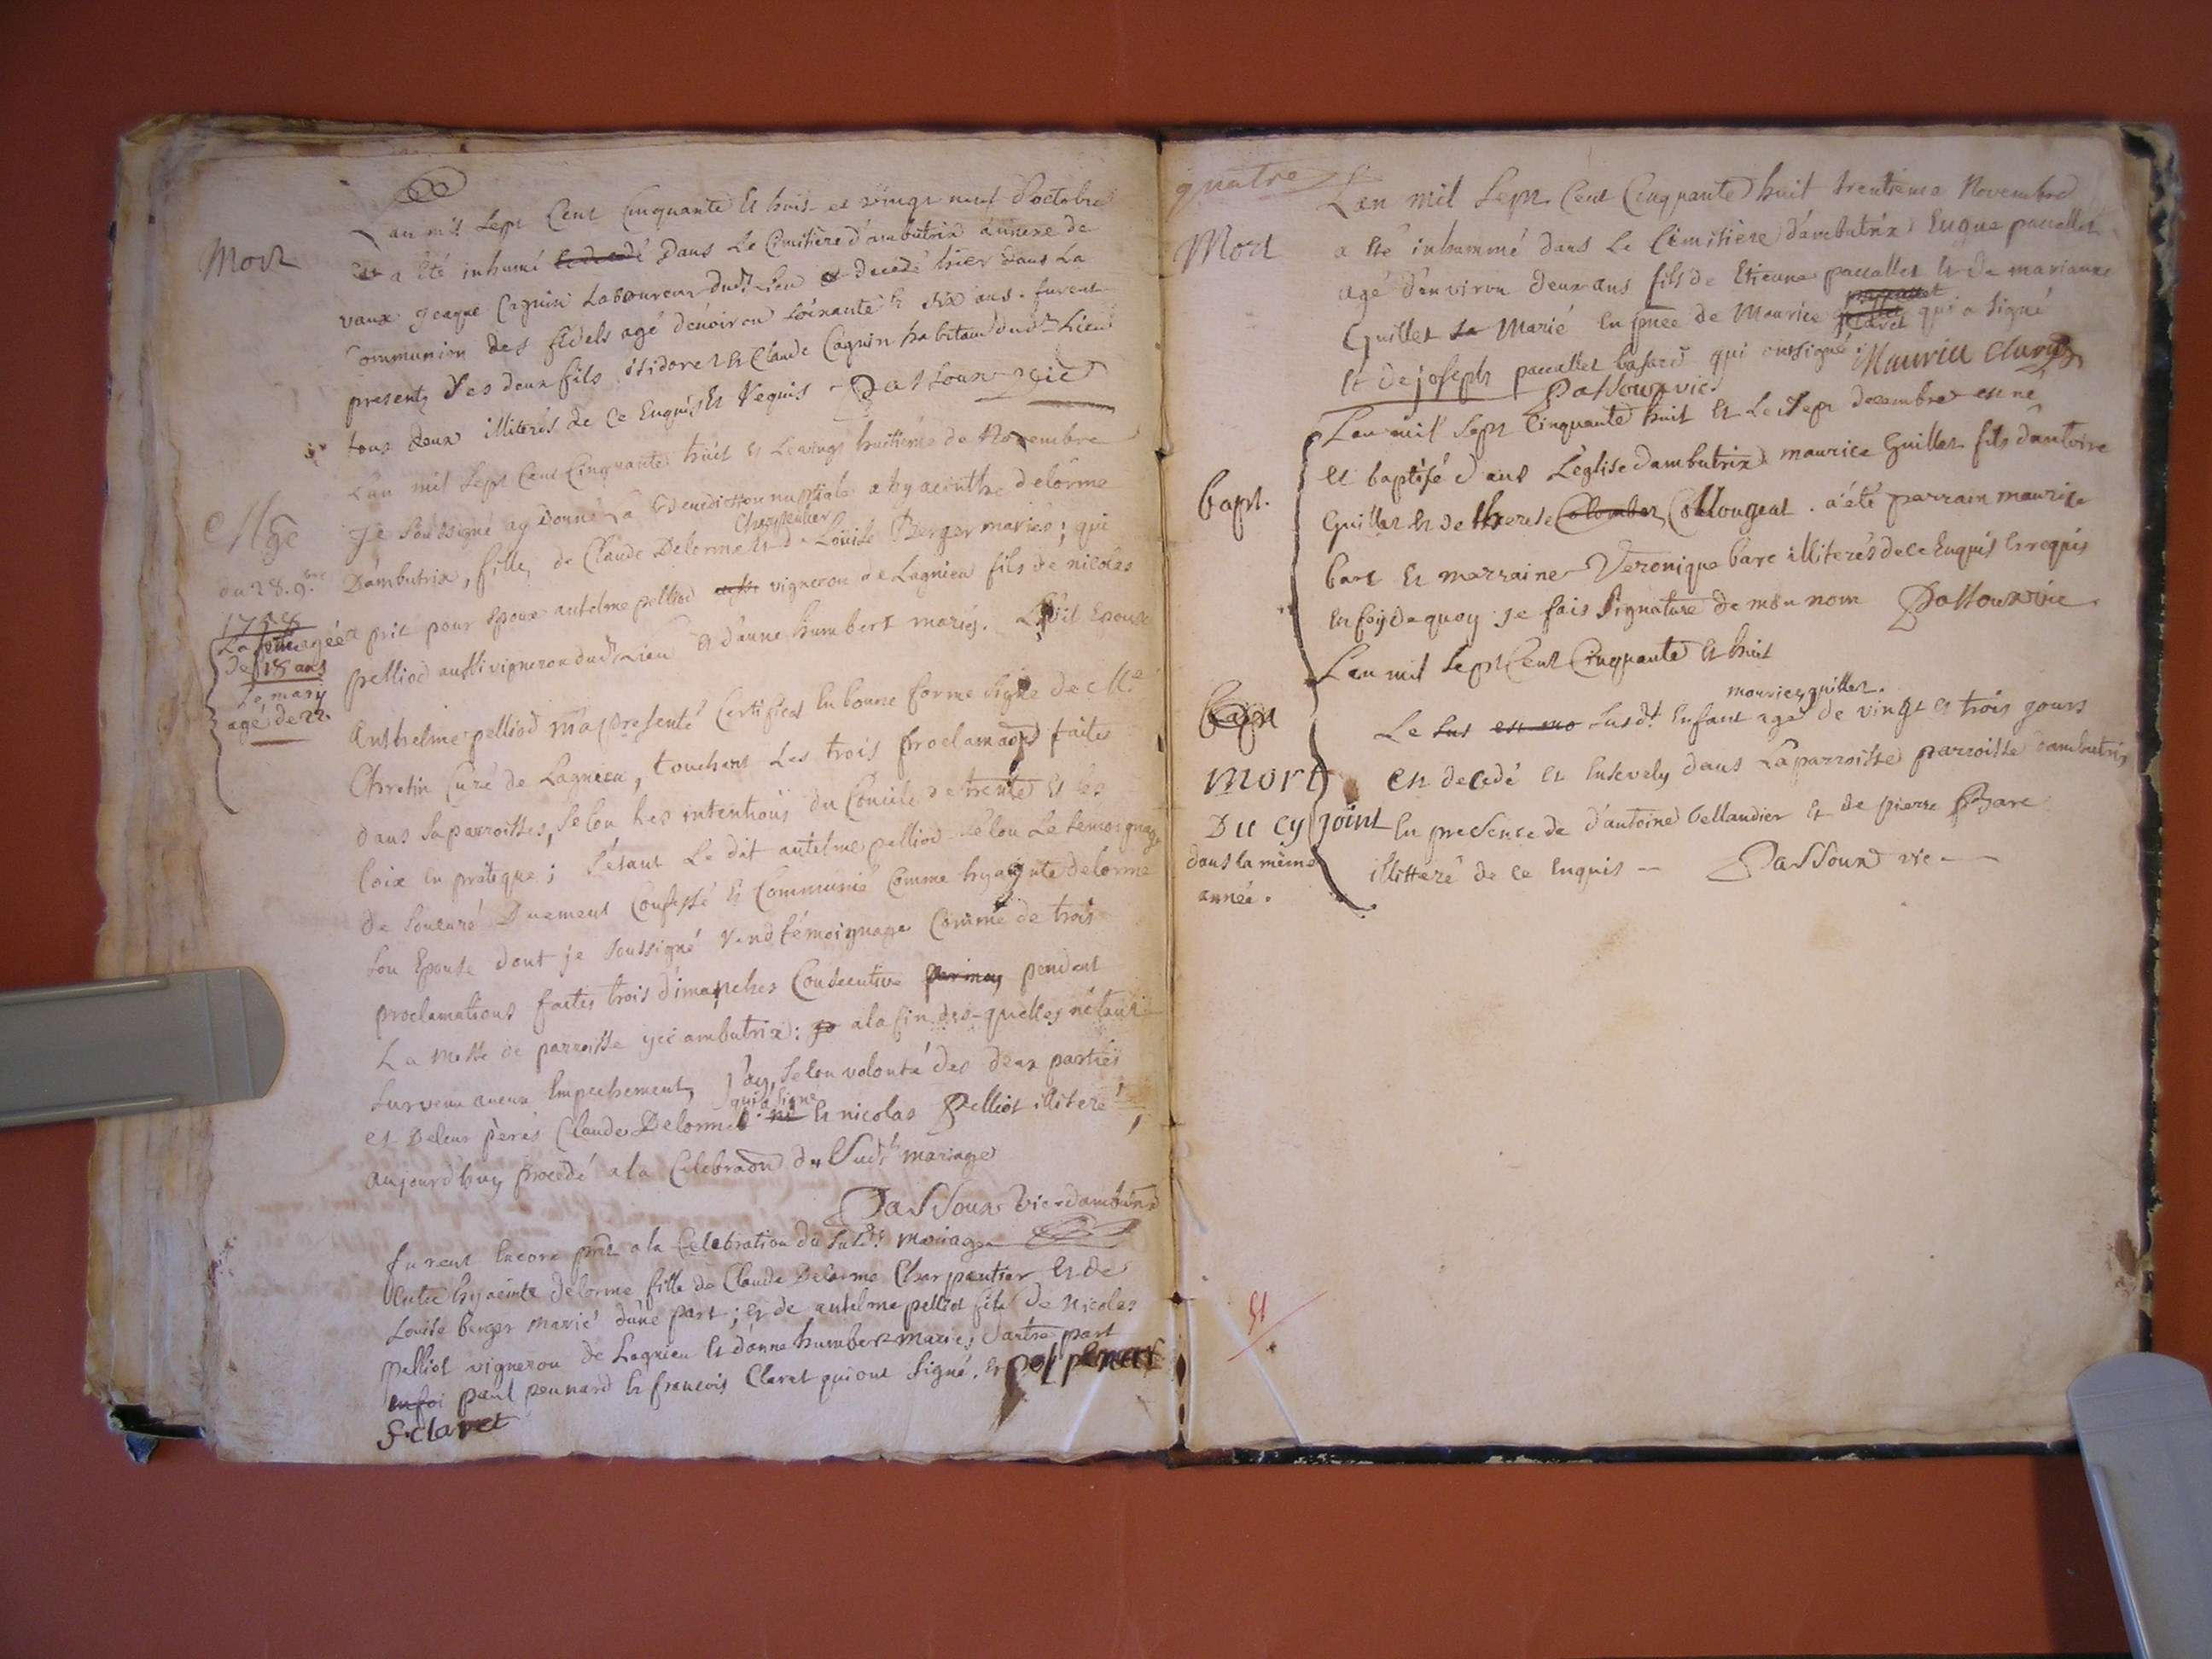 Mort
L'an mil sept Cent Cinquante et huit et vingt neuf d'octobre
est a été inhumé decedé Dans Le Cimitière d'ambutrix annexe de
vaux jeaque Caguin Laboureur dud.t Lieu et decedé hier dans La
Communion des fidels agé denviron soixante et dix ans. furent
presents ses deux fils isidore et Claude Caguin habitant dud.t Lieu
tous deux illiterés de ce Enquis et Requis Passoux vic
Mge
du 28. 9.bre
1758
La fille agée
de 18 ans
Le mary
agé de 22.
L'an mil sept Cent Cinquante huit et Le vingt huitième de Novembre
Je soussigné ay Donné La Benediction nuptiale a hyacinthe delorme
Charpentier
Dambutrix, fille de Claude Delorme et de Loüise Berger mariés; qui
a pris pour Epoux antelme pelliod vigneron de Lagnieu fils de nicolas
pelliod aussi vigneron dud.t Lieu et d'anne humbert mariés. Ledit Epoux
Anthelme pelliod m'a presenté Certificat En bonne forme signé de M.e
Chretin Curé de Lagnieu, touchant Les trois proclamaons faites
dans sa parroisse, selon Les intentions du Concile de trente et les
loix en pratique; s'étant Le dit antelme pelliod selon Le temoignage
de son curé Duement Confessé et Communié Comme hyacinte delorme
son Epouse dont je soussigné rend témoignage Comme de trois
proclamations faites trois dimanches Consecutive par moy pendent
La messe de parroisse ycï ambutrix: a la fin des-quelles n'étant
survenu aucun Empechement, j'ay, selon volonté des deux parties
qui a signé
et De leur pères Claude Delorme et nicolas Pelliot illiteré,
aujourd'huy procedé a la Celebraon du Sud.t mariage
Passoux vic dambutrix
furent Encore prnts a la Celebration du susd.t mariage
Entre hyacinte delorme fille de Claude Delorme Charpentier et de
Louise berger marié d'une part; et de antelme pelliot fils de Nicolas
pelliot vigneron de Lagnieu et d'anne humbert mariés d'autre part
en foi paul pennard et francois Claret qui ont signé. et pol penar
F. claret
quatre
Mort
L'an mil Sept Cent Cinquante huit trentieme Novembre
a été inhummé dans Le Cimitiere d'ambutrix Eugne paccallet
agé d'environ deux ans fils de Etienne paccallet et de marianne
Guillet Marié En pnce de Maurice Claret qui a signé
et de joseph paccallet qui ont signé. Maurice claret
Passoux vic.
bapt.
L'an mil sept Cinquante huit et Le sept decembre est né
et baptisé dans L'église dambutrix maurice Guillet fils dantoine
Guillet et de therese Colomber Collougeat. a été parrain maurice
bare et marraine Veronique bare illiterés de ce Enquis et requis
En foy de quoy je fais Signature de mon nom Passoux vic
L'an mil sept Cent Cinquante et huit
Bapt
mort
Du cy joint
dans la même
année.
maurice guillet.
Le sus est mo susd.t Enfant agé de vingt et trois jours
est decedé et Ensevely dans La parroisse parroisse dambutrix
En presence de d'antoine bellandier et de pierre Bare
illitteré de ce enquis — Passoux vic